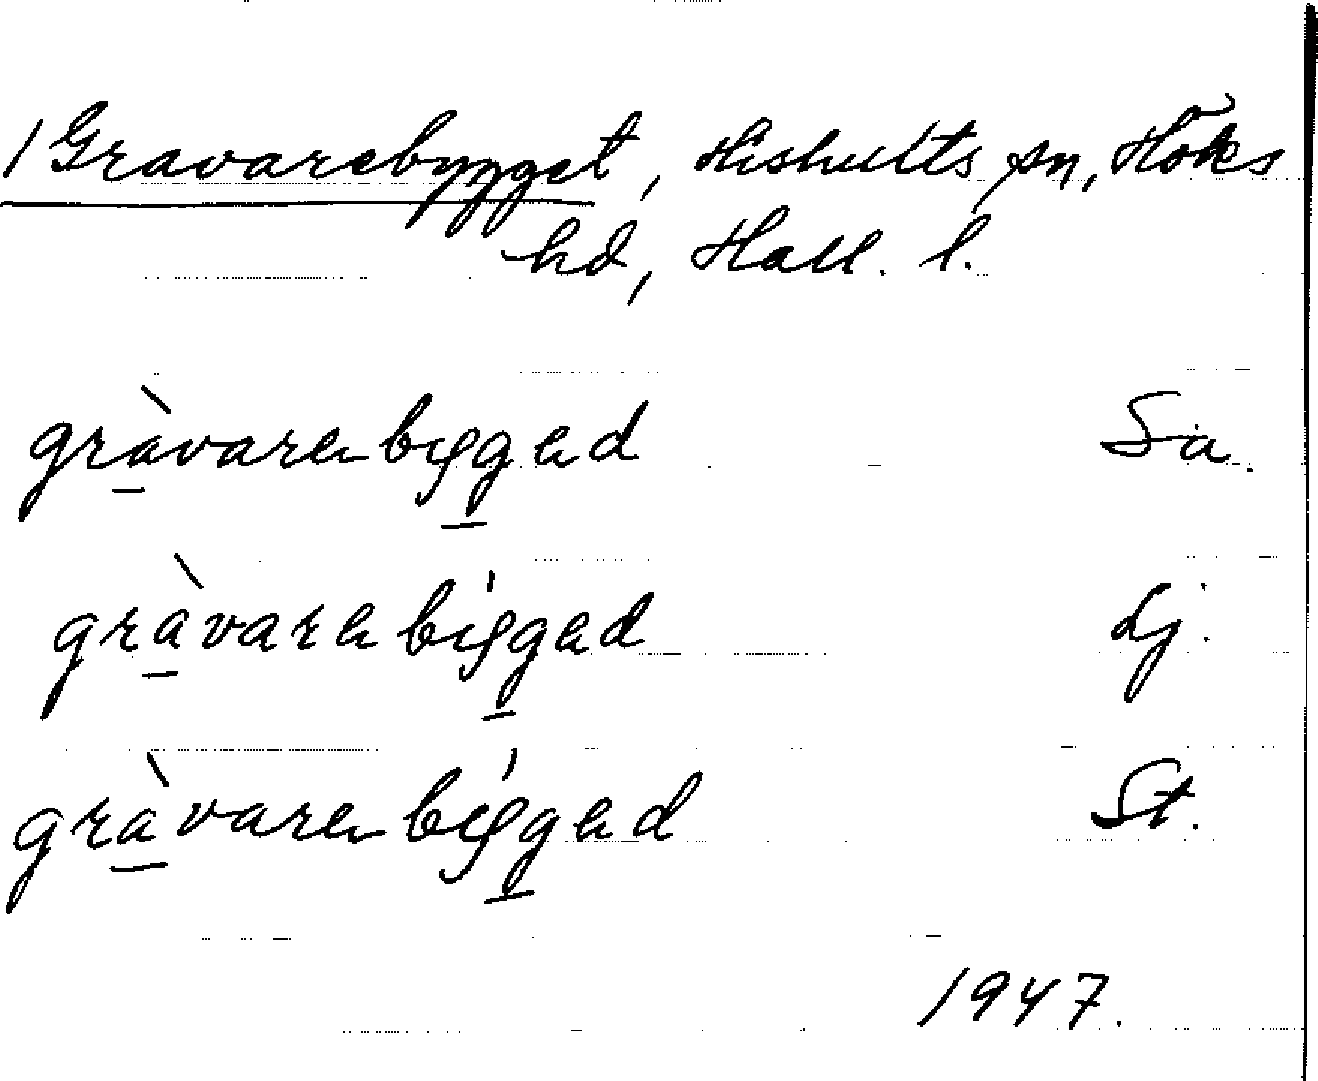 /Gravarebygget, Hishults sn, Höks
hd, Hall. l.
gràvarebyggəd Sä.
gràvarəbýggəd Lj.
gràvarebýggəd St.
1947.